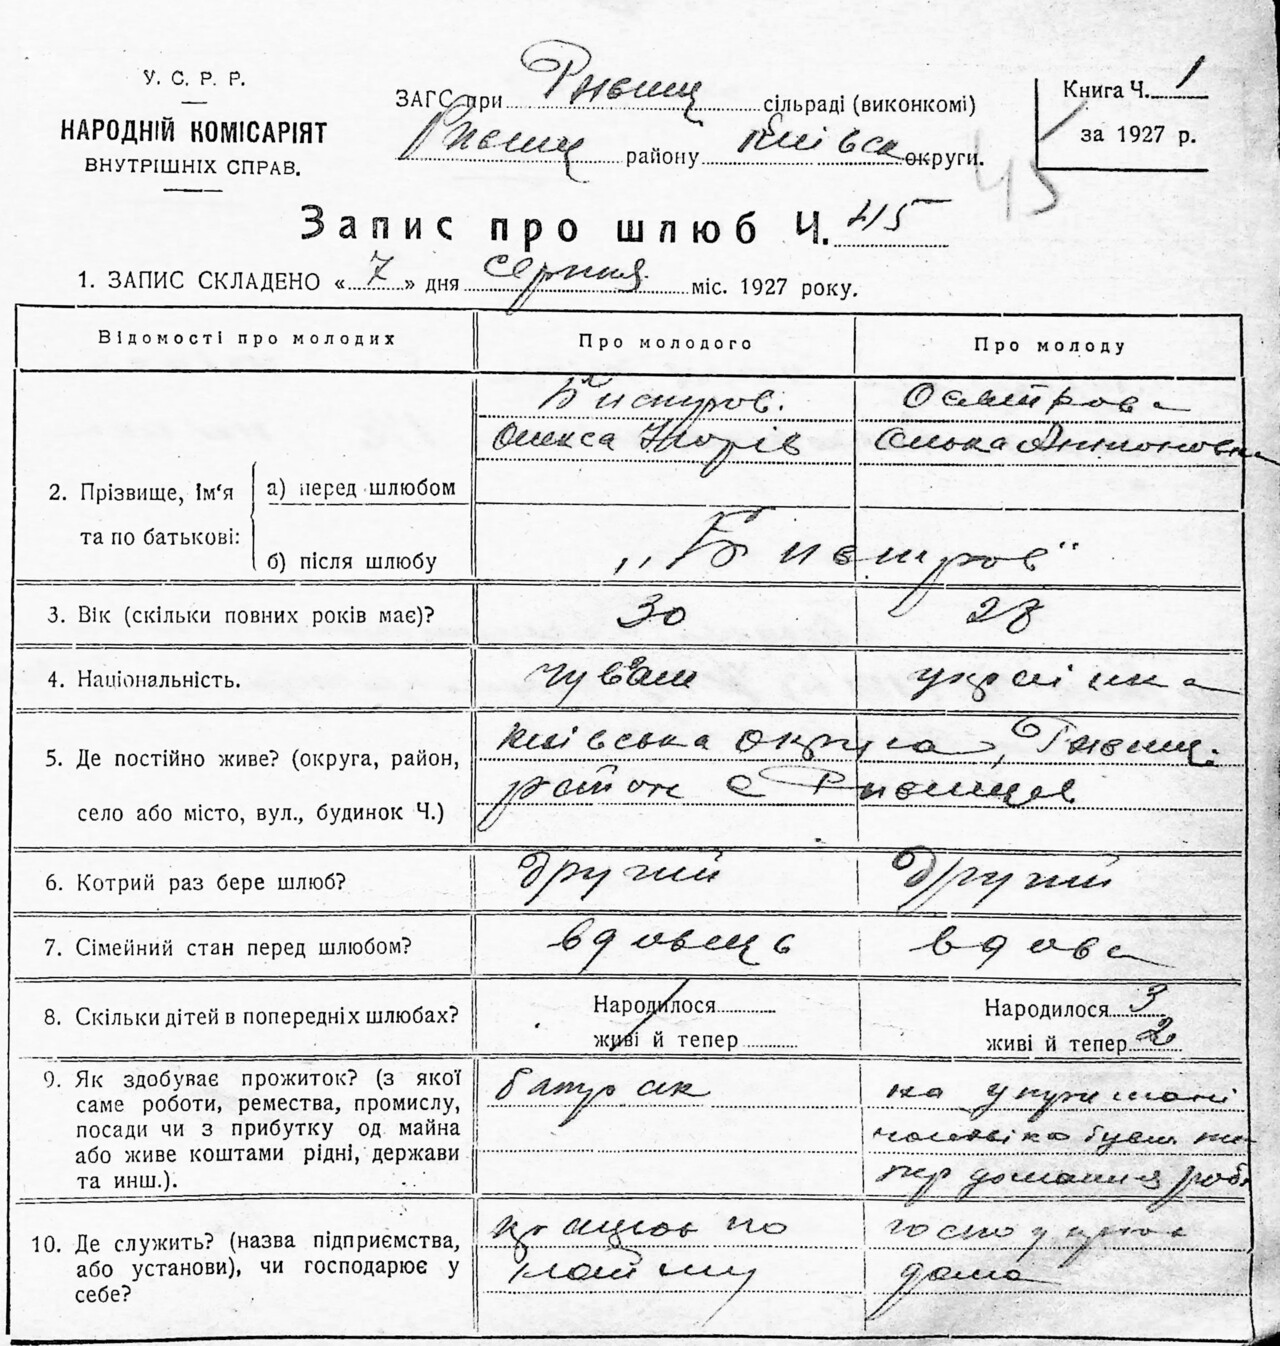 У. С. Р. Р.
НАРОДНІЙ КОМІСАРІЯТ
ВНУТРІШНІХ СПРАВ.
ЗАГС при Ржищ сільраді (виконкомі)
Ржищ району Київськ округи.
Книга Ч. 1
за 1927 р.
45
Запис про шлюб Ч. 45
1. ЗАПИС СКЛАДЕНО «7» дня серпня міс. 1927 року.
Відомості про молодих Про молодого Про молоду
2. Прізвище, Ім‘я та по батькові:
а) перед шлюбом
Олекса
б) після шлюбу
3. Вік (скільки повних років має)? 30 28
4. Національність. чуваш українка
5. Де постійно живе? (округа, район,
село або місто, вул., будинок Ч.)
Київська округа, Ржищ.
район с Ржищев
6. Котрий раз бере шлюб? другий другий
7. Сімейний стан перед шлюбом? вдовець вдова
8. Скільки дітей в попередніх шлюбах? Народилося / Народилося 3
живі й тепер живі й тепер 2
9. Як здобуває прожиток? (з якої
саме роботи, ремества, промислу,
посади чи з прибутку од майна
або живе коштами рідні, держави
та инш.).
батрак
на утриманні
чоловіка був те-
пер домашня роб
10. Де служить? (назва підприємства,
або установи), чи господарює у
себе?
працює по
найму
господарює
дома